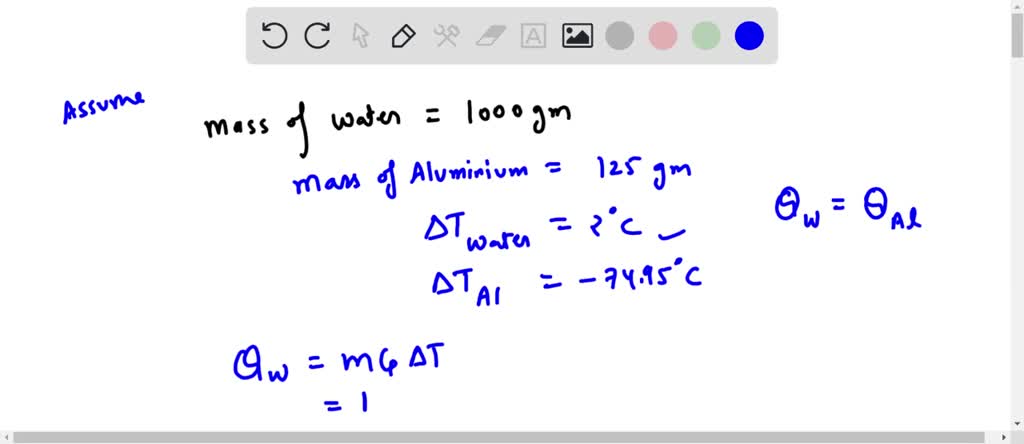 Assume
mass of water = 1000 gm
mass of Aluminium = 125 gm
ΔT water = 2°C ✓
ΔT Al = -74.95°C
Q w = Q Al
Q w = m Cp ΔT
= 1